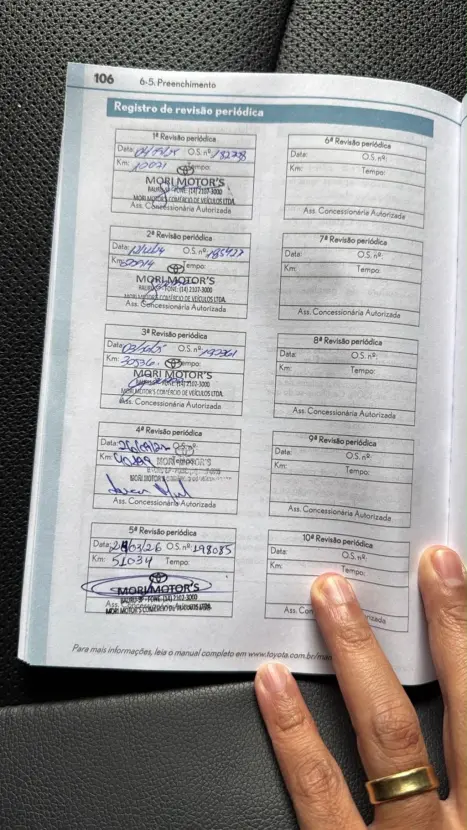 106 6-5. Preenchimento
Registro de revisão periódica
1ª Revisão periódica
Data: O.S. nº: 18278
Km: 10021 Tempo:
MORI MOTOR'S
BAURU-SP - FONE: (14) 2107-3000
MORI MOTOR'S COMÉRCIO DE VEÍCULOS LTDA.
Ass. Concessionária Autorizada
2ª Revisão periódica
Data: O.S. nº: 185427
Km: Tempo:
MORI MOTOR'S
BAURU-SP - FONE: (14) 2107-3000
MORI MOTOR'S COMÉRCIO DE VEÍCULOS LTDA.
Ass. Concessionária Autorizada
3ª Revisão periódica
Data: O.S. nº: 190361
Km: 30536 Tempo:
MORI MOTOR'S
BAURU-SP - FONE: (14) 2107-3000
MORI MOTOR'S COMÉRCIO DE VEÍCULOS LTDA.
Ass. Concessionária Autorizada
4ª Revisão periódica
Data: O.S. nº:
Km: Tempo:
MORI MOTOR'S
MORI MOTOR'S COMÉRCIO DE VEÍCULOS LTDA.
Ass. Concessionária Autorizada
5ª Revisão periódica
Data: O.S. nº: 198085
Km: 51034 Tempo:
MORI MOTOR'S
BAURU-SP - FONE: (14) 2107-3000
MORI MOTOR'S COMÉRCIO DE VEÍCULOS LTDA.
Ass. Concessionária Autorizada
6ª Revisão periódica
Data: O.S. nº:
Km: Tempo:
Ass. Concessionária Autorizada
7ª Revisão periódica
Data: O.S. nº:
Km: Tempo:
Ass. Concessionária Autorizada
8ª Revisão periódica
Data: O.S. nº:
Km: Tempo:
Ass. Concessionária Autorizada
9ª Revisão periódica
Data: O.S. nº:
Km: Tempo:
Ass. Concessionária Autorizada
10ª Revisão periódica
Data: O.S. nº:
Km: Tempo:
Ass. Con Autorizada
Para mais informações, leia o manual completo em www.toyota.com.br/man